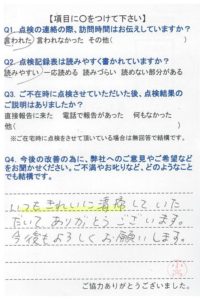 【項目に○をつけて下さい】
Q1. 点検の連絡の際、訪問時間はお伝えしていますか?
言われた 言われなかった その他( )
Q2. 点検記録表は読みやすく書かれていますか?
読みやすい 一応読める 読みづらい 読めない部分がある
Q3. ご不在時に点検させていただいた後、点検結果の
ご説明はありましたか?
直接報告に来た 電話で報告があった 何もなかった
他( )
※ご在宅時に点検をさせて頂いている場合は無回答で結構です。
Q4. 今後の改善の為に、弊社へのご意見やご希望など
をお聞かせください。ご不満やお叱りなど、どのようなこと
でも結構です。
いつもきれいに清掃していた
だいてありがとうございます。
今後もよろしくお願いします。
ご協力ありがとうございました。